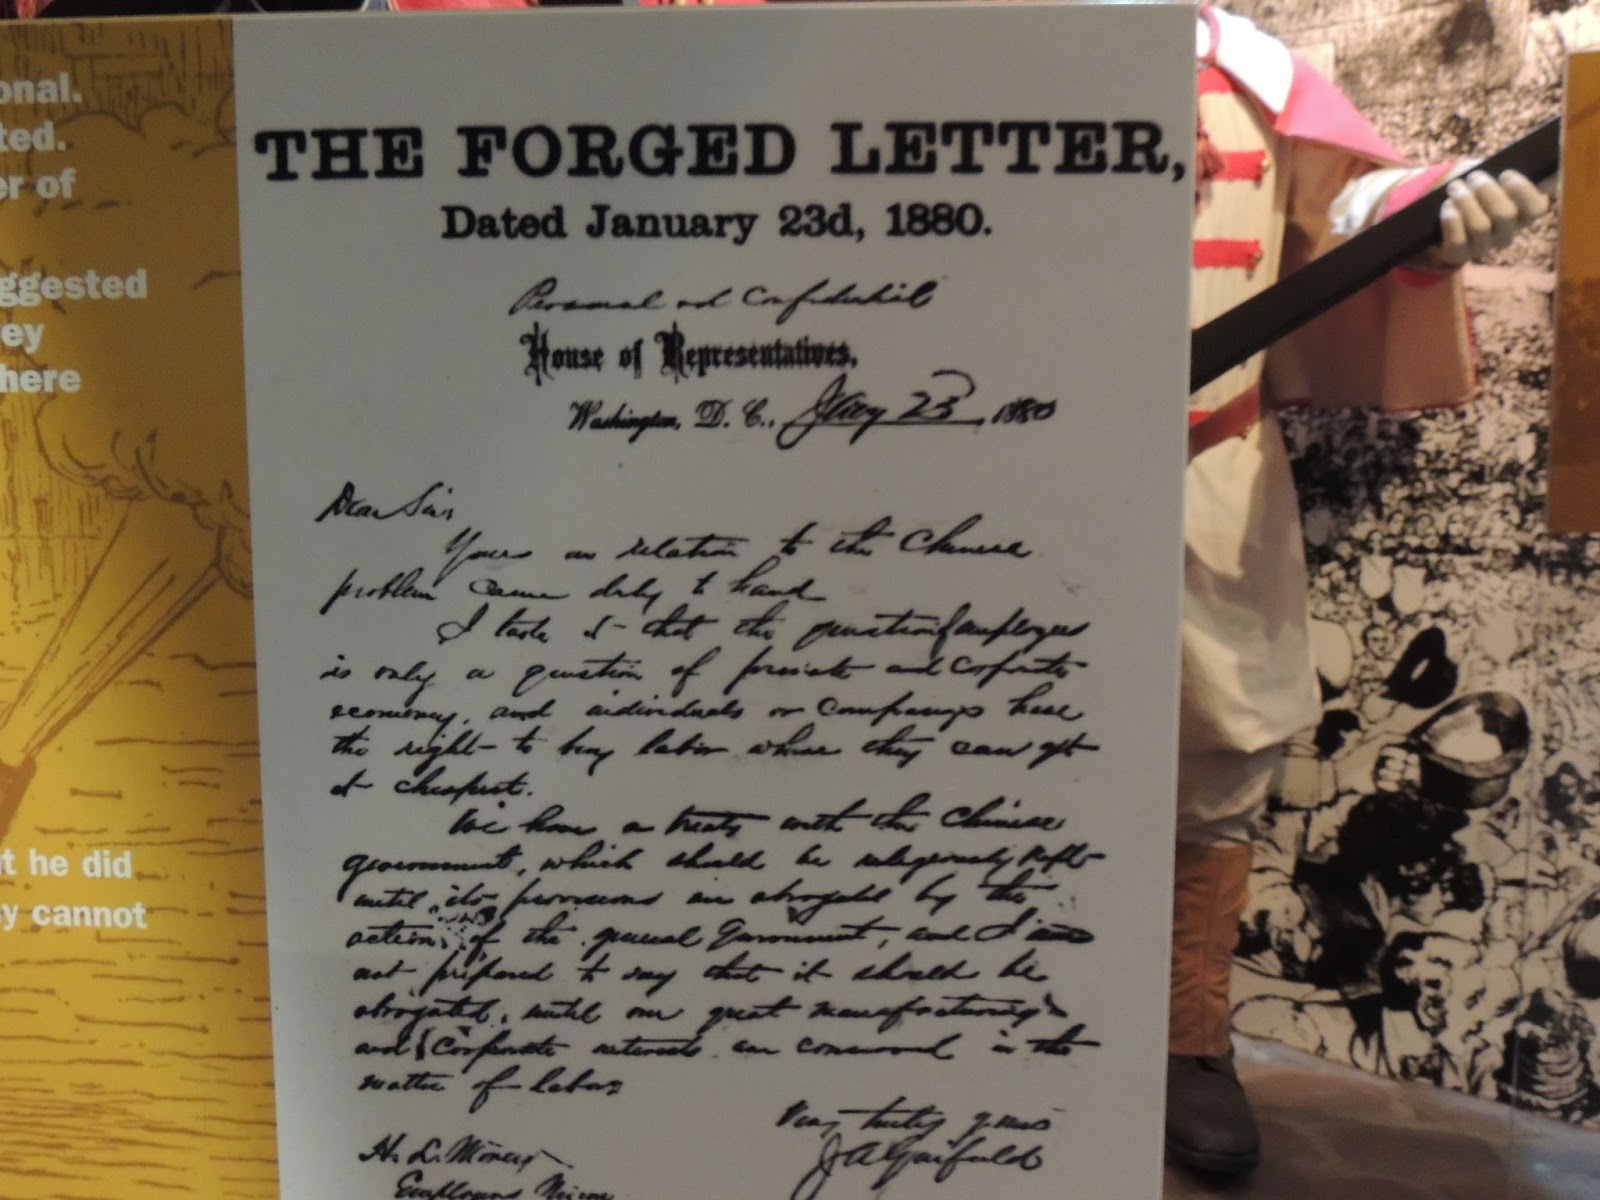 onal.
ted.
er of
ggested
ey
here
t he did
y cannot
THE FORGED LETTER,
Dated January 23d, 1880.
Personal and Confidential
House of Representatives,
Washington, D. C., Jany 23 1880
Dear Sir,
Yours in relation to the Chinese
problem came duly to hand
I take it that the question of employees
is only a question of private and corporate
economy, and individuals or companys have
the right to buy labor where they can get
it cheapest.
We have a treaty with the Chinese
government, which should be religiously kept
until its provisions are abrogated by the
action of the general Government, and I am
not prepared to say that it should be
abrogated, until our great manufacturing
and Corporate interests are conserved in the
matter of labor
Very truly yours
J A Garfield
H. L. Morey
Employers Union